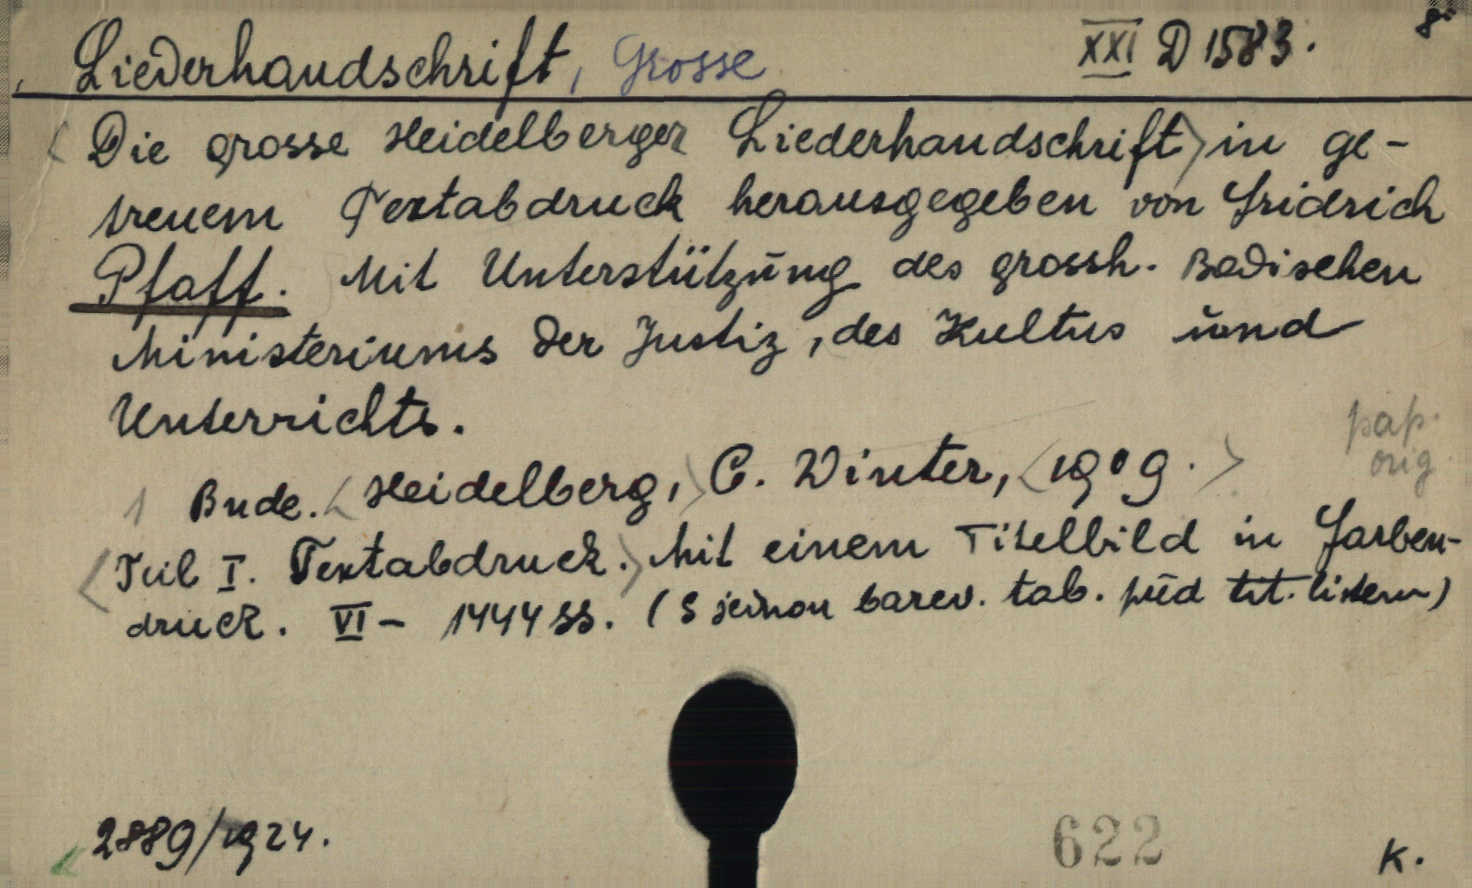 Liederhandschrift, Grosse XXI D 1583. 8°
<Die grosse Heidelberger Liederhandschrift> in ge-
treuem Textabdruck herausgegeben von Fridrich
Pfaff. Mit Unterstützung des grossh. Badischen
Ministeriums der Justiz, des Kultus und
Unterrichts.
pap. orig
1 Bnde. <Heidelberg,> C. Winter, <1909.>
<Teil I. Textabdruck.> Mit einem Titelbild in Farben-
druck. VI - 1444 ss. (S jednou barev. tab. před tit. listem)
2889/1924. 622 K.